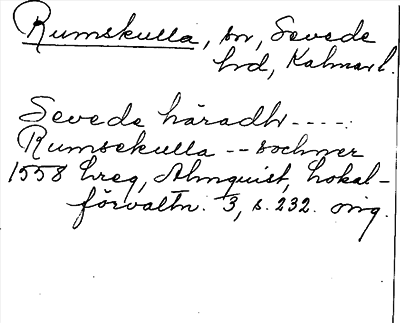 Rumskulla, sn, Sevede
hd, Kalmar l.
Sevede häradh ----:
Rumsekulla -- sochner
1558 hreg, Almquist, Lokal-
förvaltn. 3, s. 232. orig.